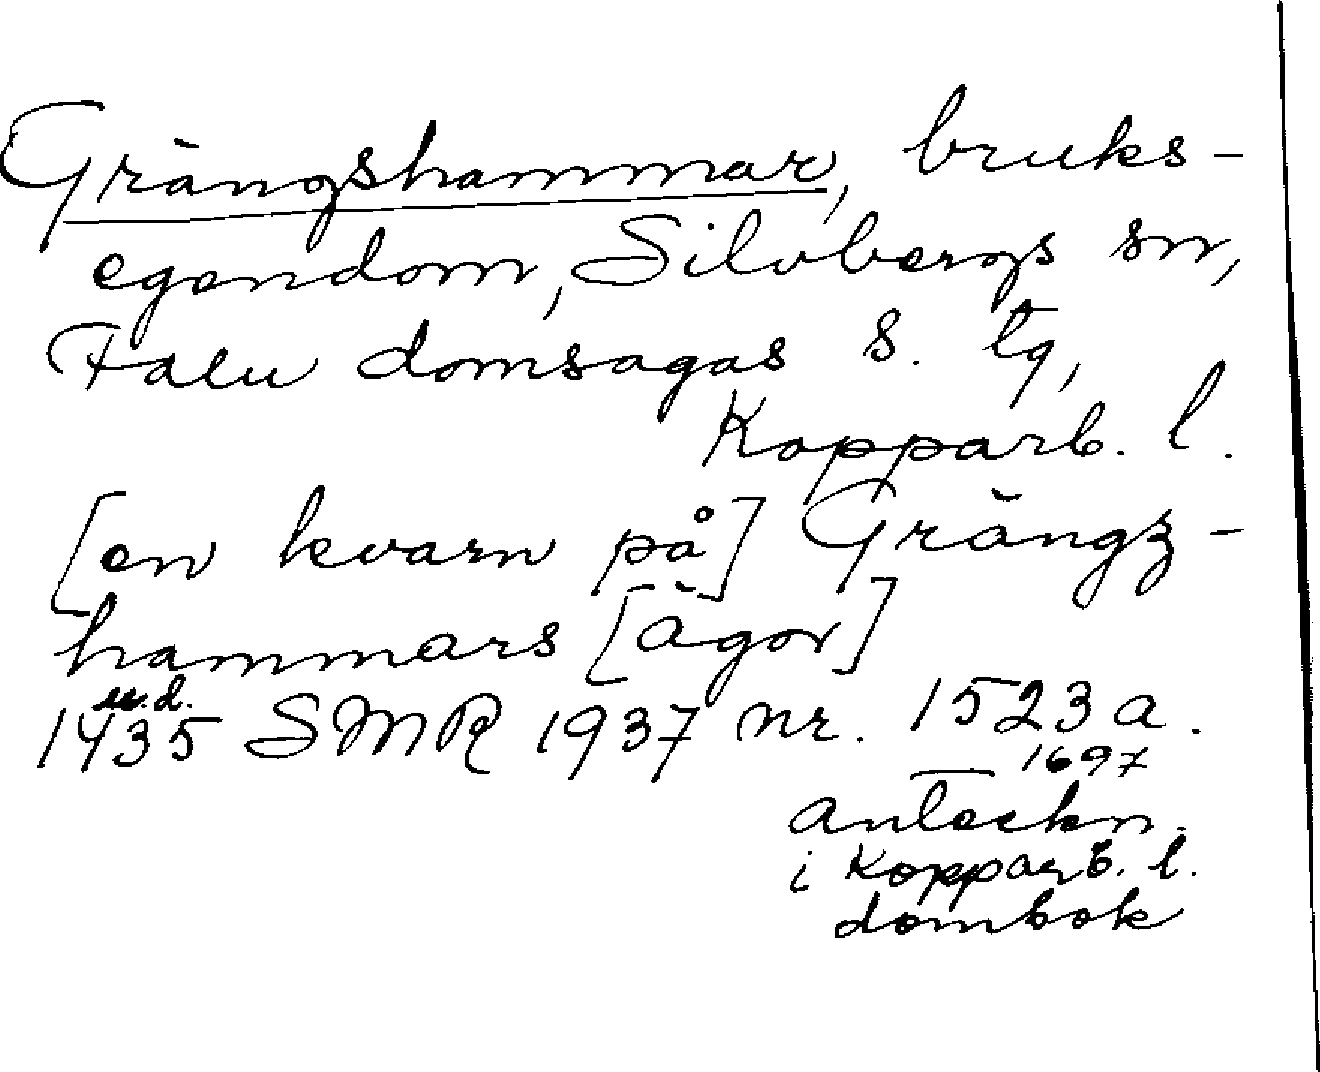 Grängshammar, bruks-
egendom, Silvbergs sn,
Falu domsagas s. tg,
Kopparb. l.
[en kvarn på] Grängz-
hammars [ägor]
u.d.
1435 SMR 1937 nr. 1523 a.
1697
anteckn.
i Kopparb. l.
dombok